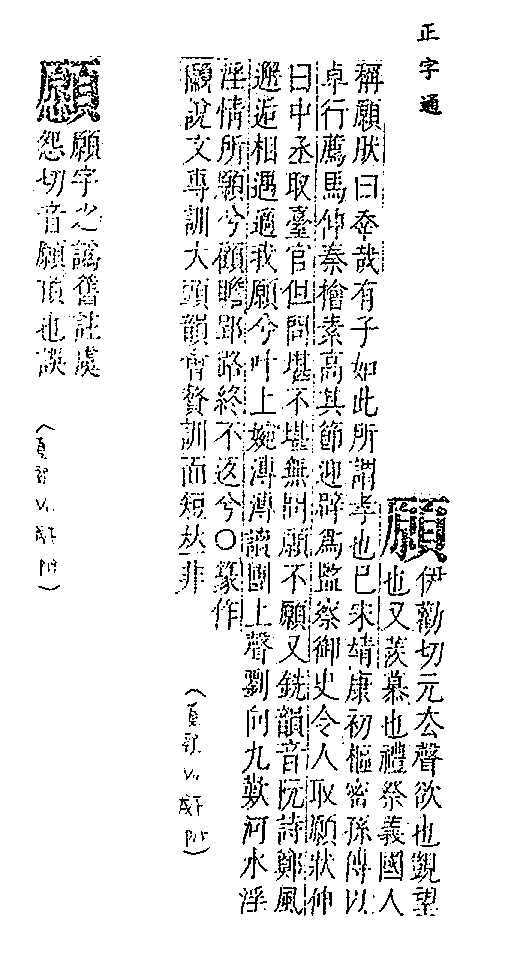 正字通
願
伊勸切元去聲欲也覬望
也又羨慕也禮祭義國人
稱願肰曰幸哉有子如此所謂孝也巳宋靖康初樞密孫傅以
卓行薦馬伸秦檜素高其節迎辟為監察御史令人取願狀伸
曰中丞取臺官但問堪不堪無問願不願又銑韻音阮詩鄭風
邂逅相遇適我願兮叶上婉漙漙讀團上聲劉向九歎河水淫
淫情所願兮顧瞻郢路終不返兮○篆作
願說文專訓大頭韻會贅訓面短肰非
(頁部 戌下 P15)
願
願字之譌舊註虞
怨切音願頂也誤
(頁部 戌下 P19)